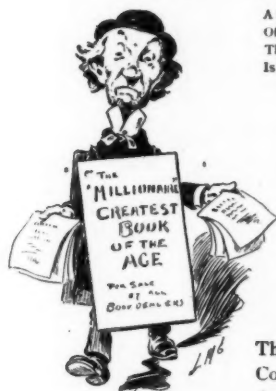 A
Of
Th
Is
"THE
"MILLIONAIRE"
GREATEST
BOOK
OF THE
AGE
FOR SALE
ALL
BOOK DEALERS
Th
Co